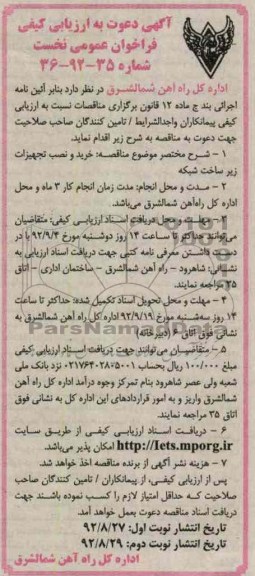 آگهی دعوت به ارزیابی کیفی
فراخوان عمومی نخست
شماره ۳۵-۹۲-۳۶
اداره کل راه آهن شمالشرق در نظر دارد بنابر آئین نامه
اجرائی بند ج ماده ۱۲ قانون برگزاری مناقصات نسبت به ارزیابی
کیفی پیمانکاران واجدالشرایط / تامین کنندگان صاحب صلاحیت
جهت دعوت به مناقصه به شرح زیر اقدام نماید.
۱ - شرح مختصر موضوع مناقصه: خرید و نصب تجهیزات
زیر ساخت شبکه
۲ - مدت و محل انجام: مدت زمان انجام کار ۳ ماه و محل
اداره کل راه‌آهن شمالشرق می‌باشد.
۳ - مهلت و محل دریافت اسناد ارزیابی کیفی: متقاضیان
می‌توانند حداکثر تا ساعت ۱۴ روز دوشنبه مورخ ۹۲/۹/۴ با در
دست داشتن معرفی نامه کتبی جهت دریافت اسناد ارزیابی به
نشانی: شاهرود - راه آهن شمالشرق - ساختمان اداری - اتاق
۳۵ مراجعه نمایند.
۴ - مهلت و محل تحویل اسناد تکمیل شده: حداکثر تا ساعت
۱۴ روز سه‌شنبه مورخ ۹۲/۹/۱۹ اداره کل راه آهن شمالشرق به
نشانی فوق اتاق ۶ (دبیرخانه)
۵ - متقاضیان می‌توانند جهت دریافت اسناد ارزیابی کیفی
مبلغ ۱۰۰/۰۰۰ ریال بحساب ۰۲۱۷۶۴۰۲۸۰۵۰۰۱ نزد بانک ملی
شعبه ولی عصر شاهرود بنام تمرکز وجوه درآمد اداره کل راه آهن
شمالشرق واریز و به امور قراردادهای این اداره کل به نشانی فوق
اتاق ۳۵ مراجعه نمایند.
۶ - دریافت اسناد ارزیابی کیفی از طریق سایت
http://Iets.mporg.ir امکان پذیر می‌باشد.
۷ - هزینه نشر آگهی از برنده مناقصه اخذ خواهد شد.
پس از ارزیابی کیفی، از پیمانکاران / تامین کنندگان صاحب
صلاحیت که حداقل امتیاز لازم را کسب نموده باشند جهت
دریافت اسناد مناقصه دعوت بعمل خواهد آمد.
تاریخ انتشار نوبت اول: ۹۲/۸/۲۷
تاریخ انتشار نوبت دوم: ۹۲/۸/۲۹
اداره کل راه آهن شمالشرق